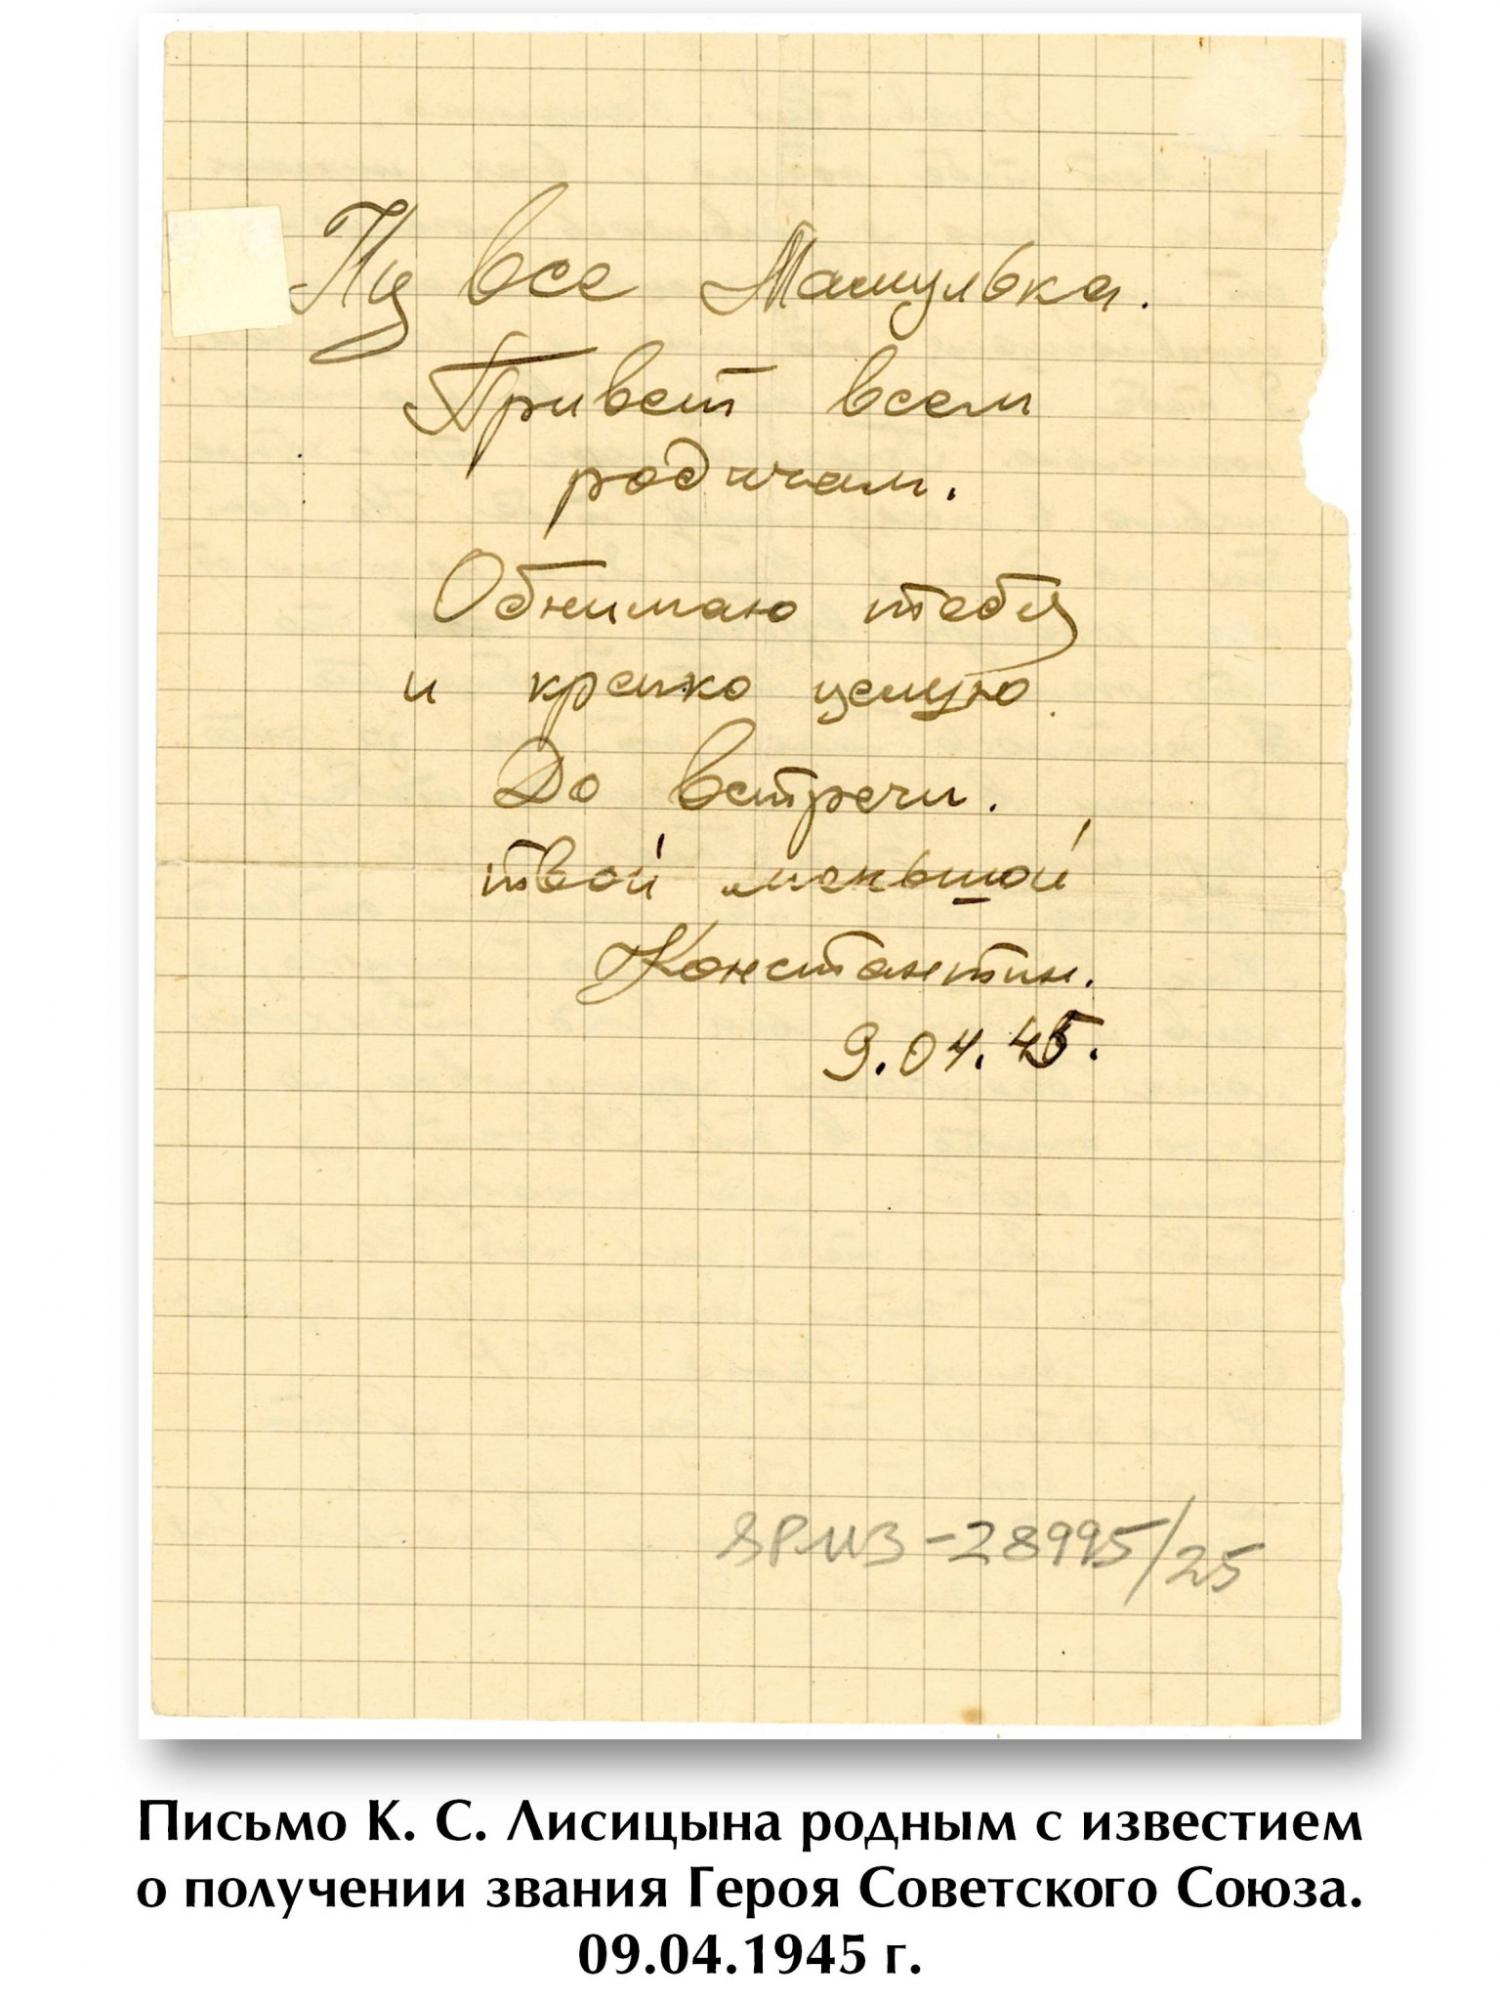 Ну все Мамулька.
Привет всем
родичам.
Обнимаю тебя
и крепко целую.
До встречи.
твой меньшой
Константин.
9.04.45.
ЯРМЗ-28995/25
Письмо К. С. Лисицына родным с известием
о получении звания Героя Советского Союза.
09.04.1945 г.